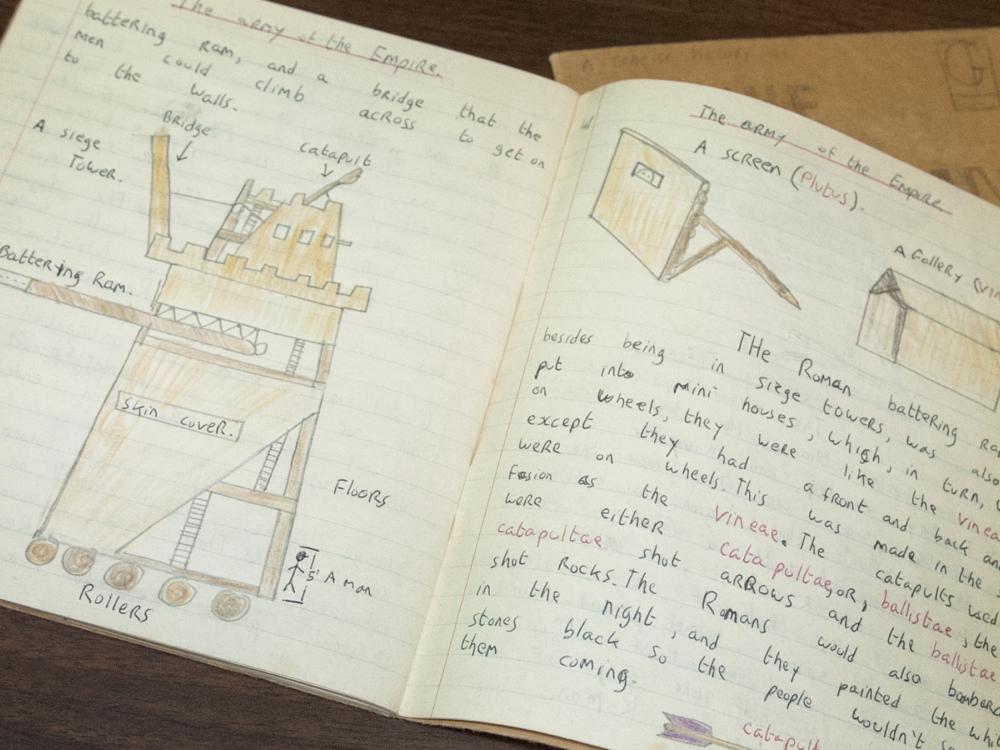 The army of the Empire.
battering ram, and a bridge that the
men could climb across to get on
to the walls.
A siege
Tower.
Bridge
catapult
Battering Ram.
skin cover.
Floors
5'
A man
Rollers
The army of the Empire
A screen (Plutus).
A Gallery
The Roman battering
besides being in siege towers, was also
put into mini houses, which, in turn,
on wheels, they were like the
except they had a front and back
were on wheels. This was made in the
fasion as the vineae. The catapults used
were either catapultae or, ballistae, the
catapultae shot arrows and the ballistae
shot rocks. The Romans would also
in the night, and they painted the
stones black so the people wouldn't
them coming.
A Concise History of
THE